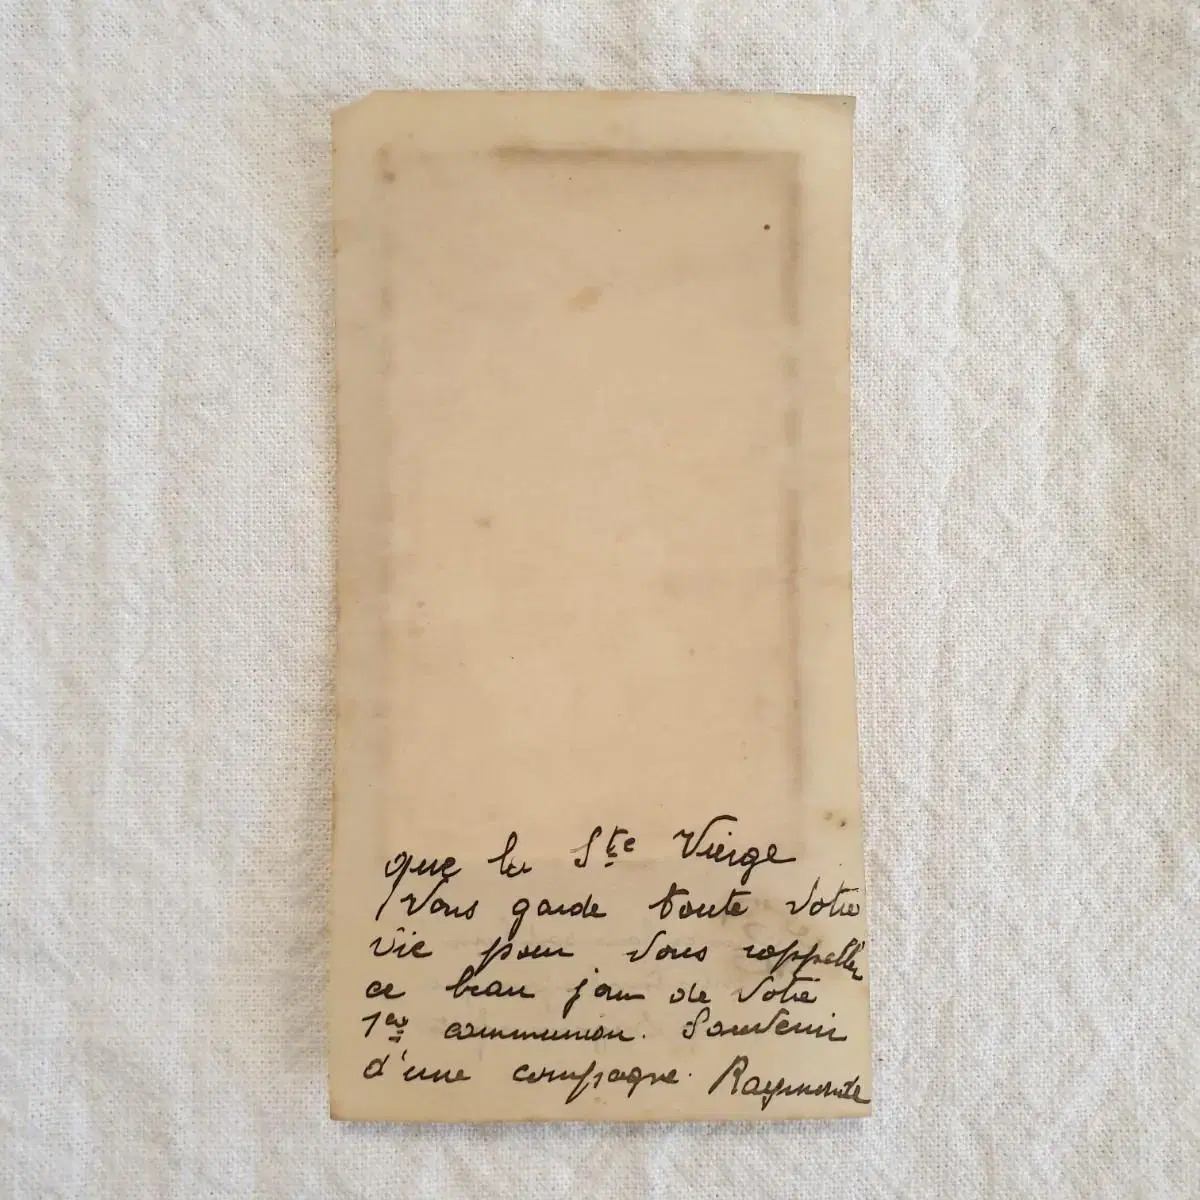 que la Ste Vierge
Vous garde toute Votre
vie pour Vous rappeller
ce beau jour de Votre
1ere communion. Souvenir
d'une compagne. Raymonde